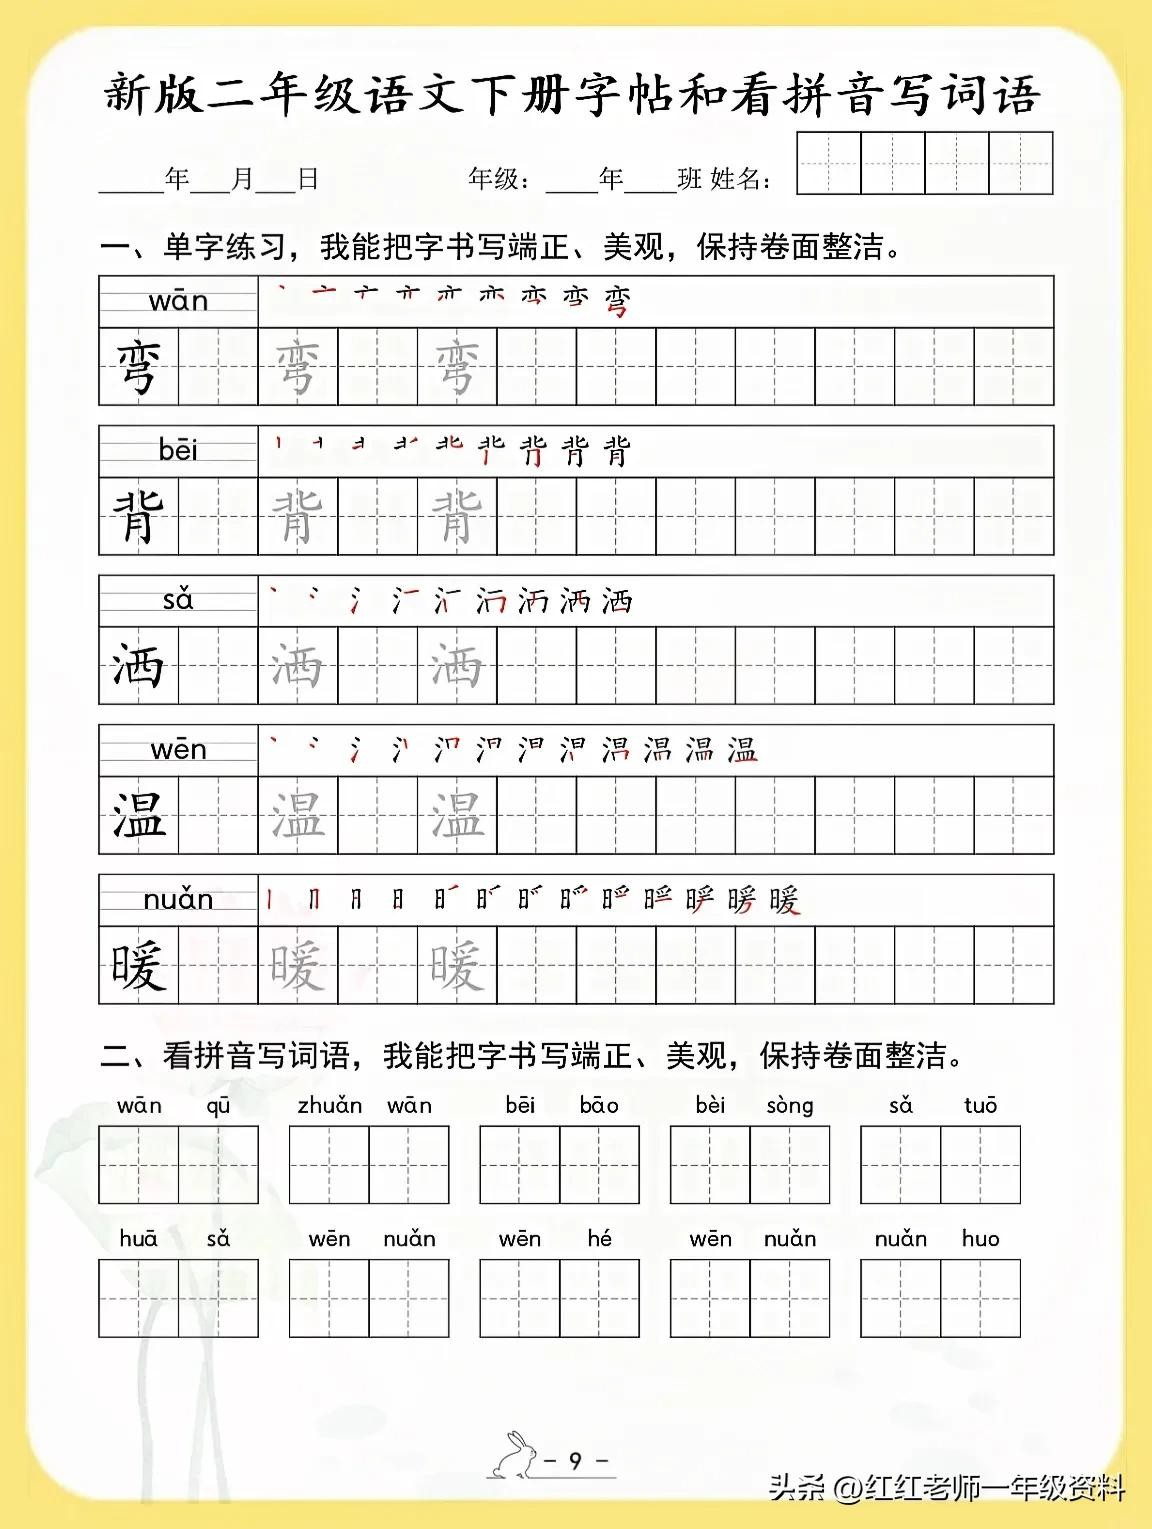 新版二年级语文下册字帖和看拼音写词语
_____年___月___日 年级：____年____班 姓名：
一、单字练习，我能把字书写端正、美观，保持卷面整洁。
wān
弯 弯 弯
bēi
背 背 背
sǎ
洒 洒 洒
wēn
温 温 温
nuǎn
暖 暖 暖
二、看拼音写词语，我能把字书写端正、美观，保持卷面整洁。
wān qū zhuǎn wān bēi bāo bèi sòng sǎ tuō
huā sǎ wēn nuǎn wēn hé wēn nuǎn nuǎn huo
- 9 -
头条 @红红老师一年级资料